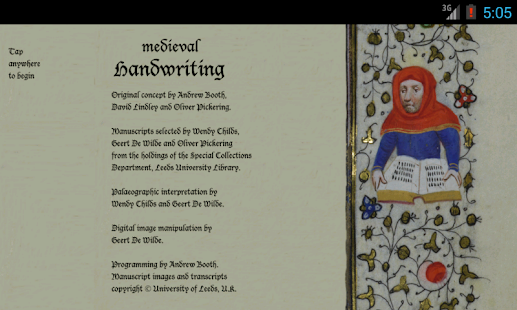 3G
5:05
Tap
anywhere
to begin
medieval
Handwriting
Original concept by Andrew Booth,
David Lindley and Oliver Pickering.
Manuscripts selected by Wendy Childs,
Geert De Wilde and Oliver Pickering
from the holdings of the Special Collections
Department, Leeds University Library.
Palaeographic interpretation by
Wendy Childs and Geert De Wilde.
Digital image manipulation by
Geert De Wilde.
Programming by Andrew Booth.
Manuscript images and transcripts
copyright © University of Leeds, U.K.